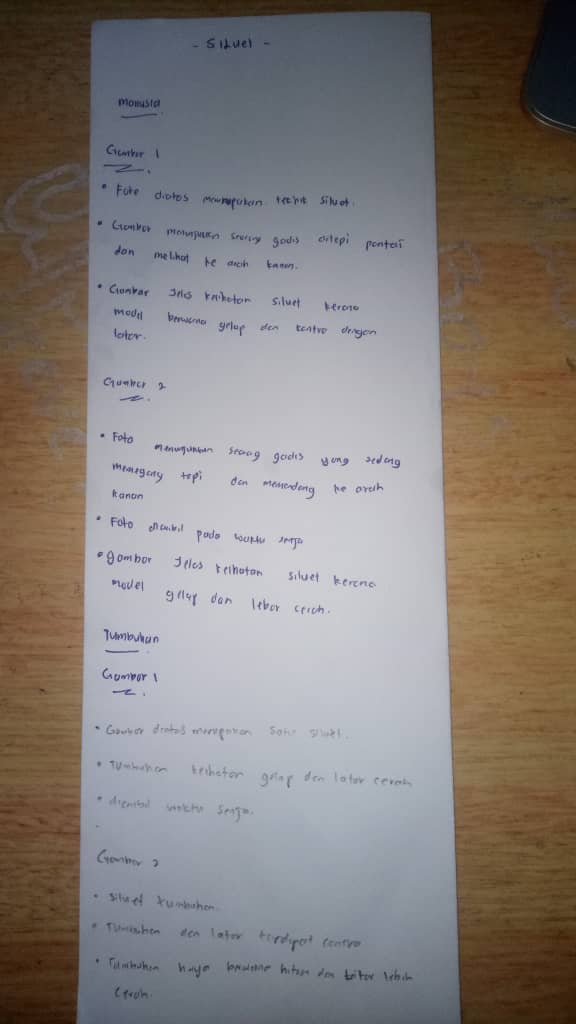 - Siluet -
Manusia
Gambar 1
• Foto diatas merupakan teknik siluet.
• Gambar menunjukan seorang gadis ditepi pantai
dan melihat ke arah kanan.
• Gambar Jelas kelihatan siluet kerana
model berwarna gelap dan kontra dengan
latar.
Gambar 2
• Foto menunjukan seorang gadis yang sedang
memegang tepi dan memandang ke arah
kanan
• Foto diambil pada waktu senja
• gambar Jelas kelihatan siluet kerana
model gelap dan lebar cerah.
Tumbuhan
Gambar 1
• Gambar diatas merupakan siluet.
• Tumbuhan kelihatan gelap dan latar cerah
• diambil waktu senja.
Gambar 2
• Siluet tumbuhan.
• Tumbuhan dan latar terdapat contra
• Tumbuhan hanya berwarna hitam dan latar lebih
cerah.